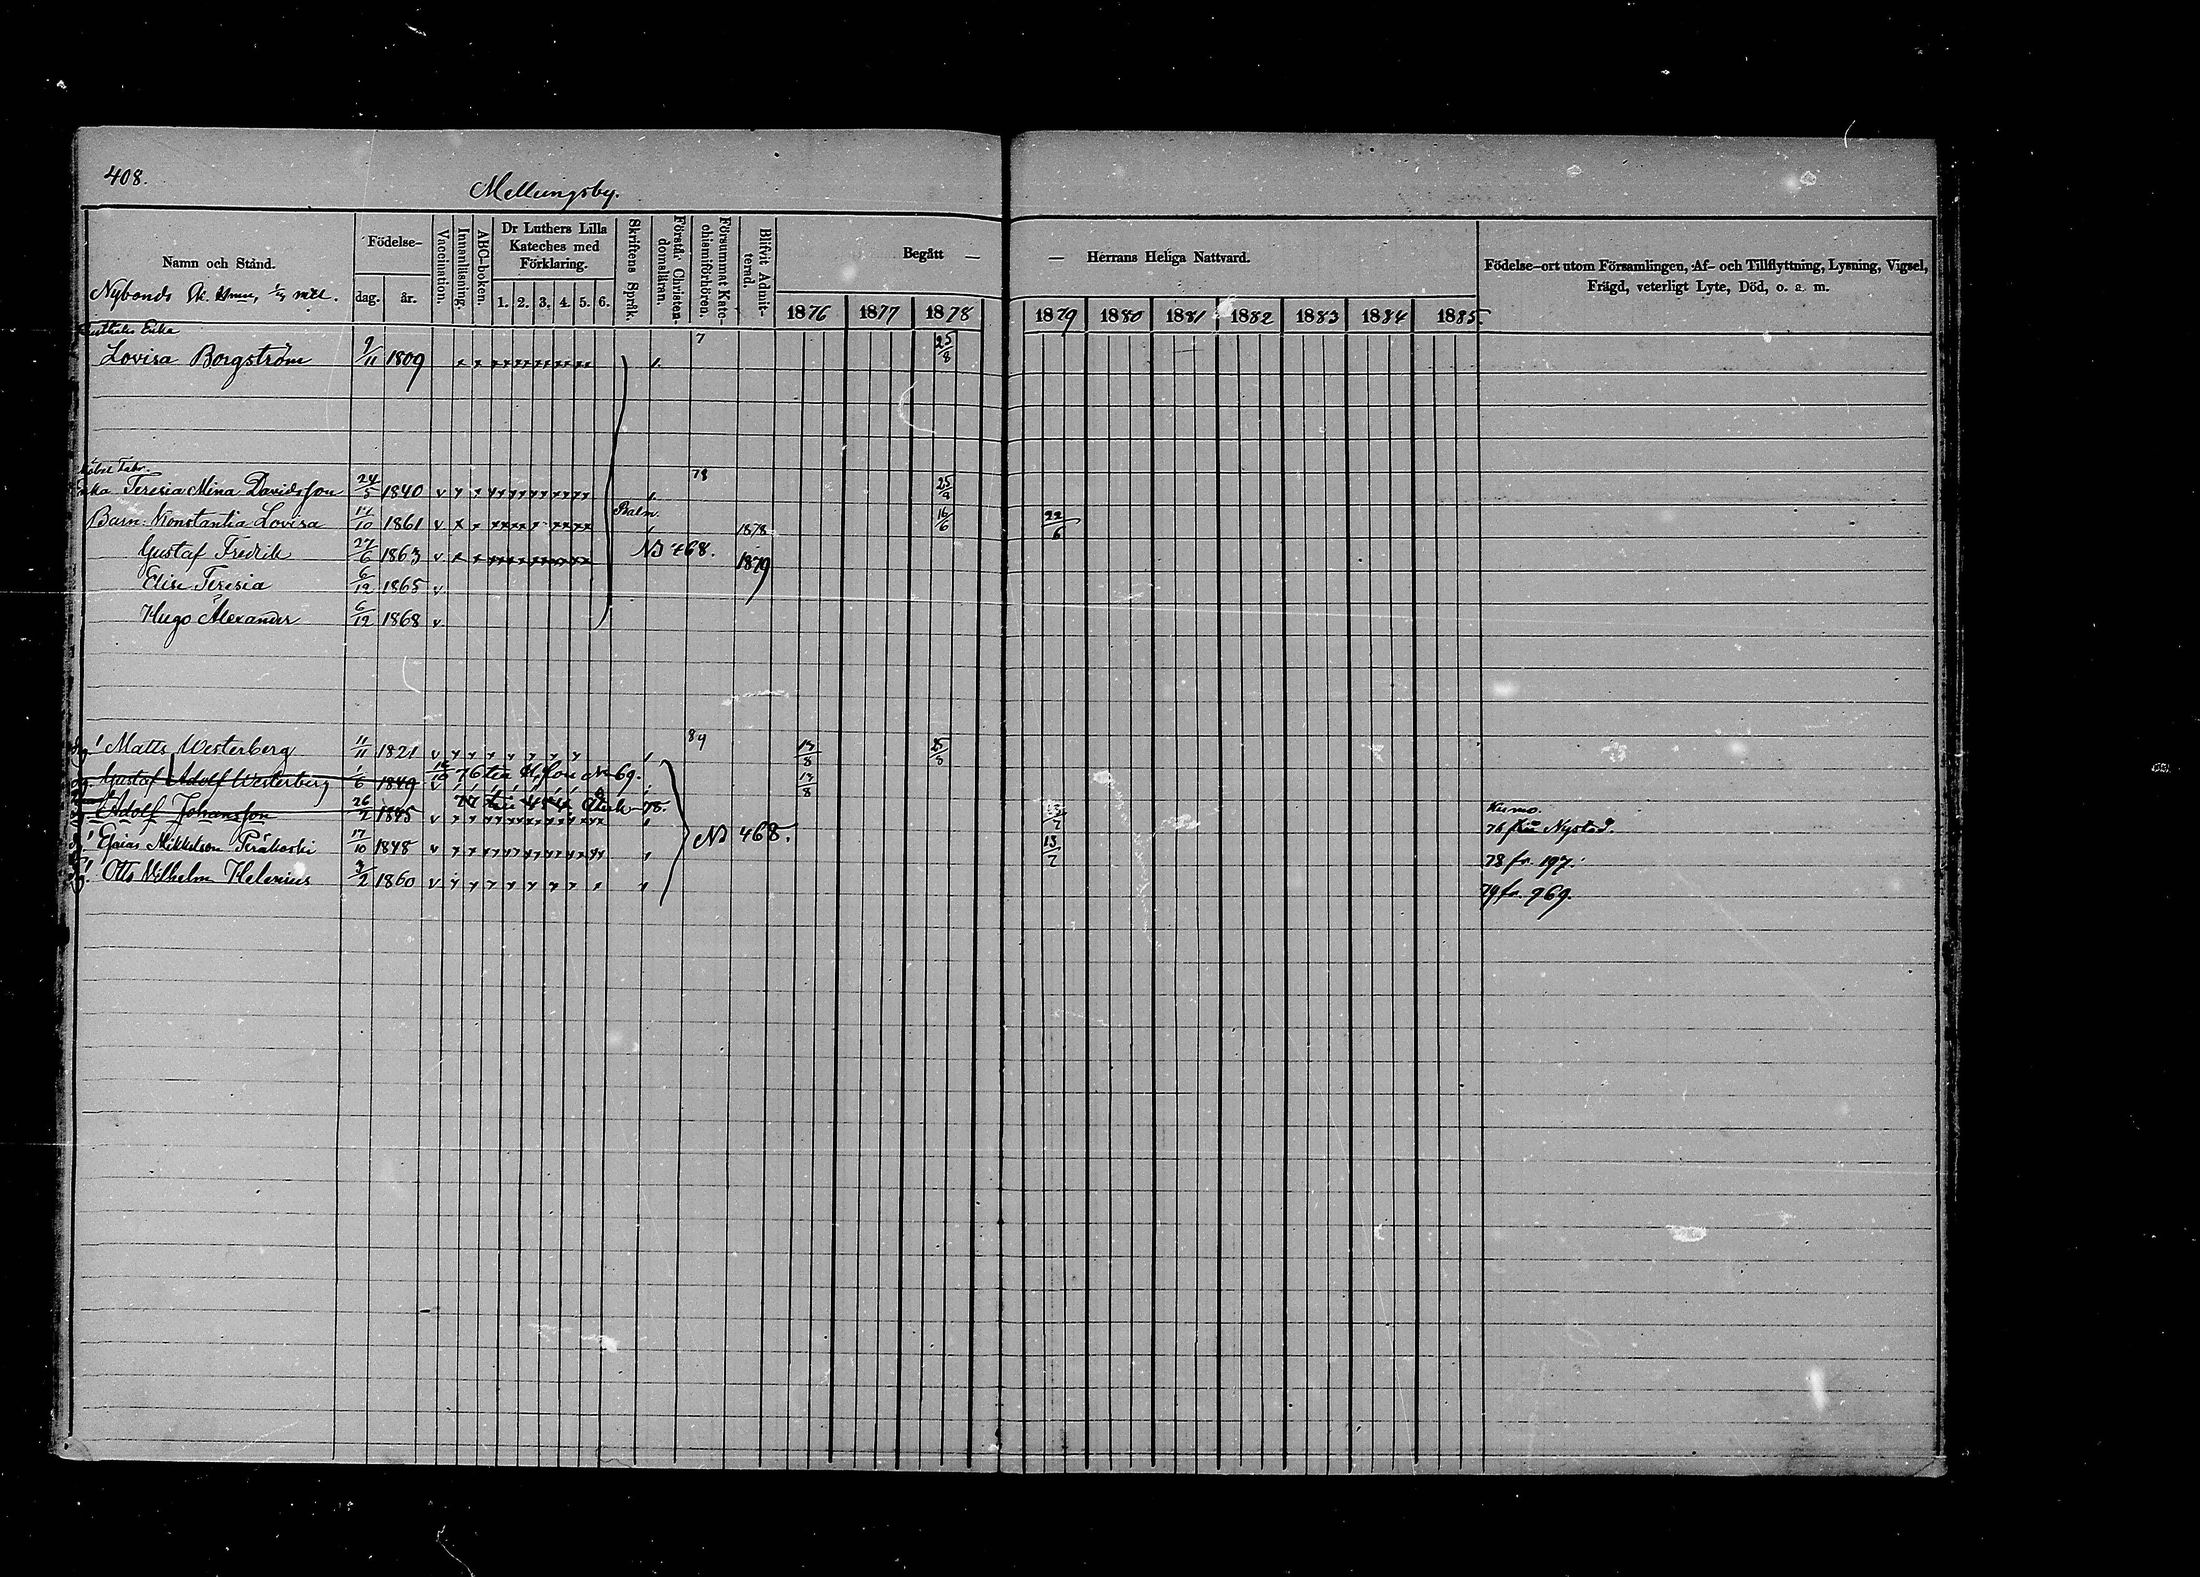 408.
Mellungsby.
Namn och Stånd.
Nybonds
Födelse-
dag.
år.
Vaccination.
Innanläsning.
ABC-boken.
Dr Luthers Lilla Kateches med Förklaring.
1. 2. 3. 4. 5. 6.
Skriftens Språk.
Förstår Christendomsläran.
Försummat Katechismiförhören.
Blifvit Admitterad.
Begått — — Herrans Heliga Nattvard.
1876 1877 1878 1879 1880 1881 1882 1883 1884 1885
Födelse-ort utom Församlingen, Af- och Tillflyttning, Lysning, Vigsel,
Frägd, veterligt Lyte, Död, o. s. m.
Enka
Lovisa Borgström 9/11 1809 7 25/8
Enka Teresia Mina Davidsson 24/5 1840 v 78 25/8
Barn: Konstantia Lovisa 17/10 1861 v 1878 16/6 22/6
Gustaf Fredrik 27/6 1863 v N3 468. 1879
Elise Teresia 6/12 1865 v
Hugo Alexander 6/12 1868 v
Matts Westerberg 11/11 1821 v 89 13/8 25/8
Gustaf Adolf Westerberg 1/6 1849 v 13/8
Adolf Johansson 26/2 1845 v 13/7 Kumo.
76 från Nystad.
Esaias Mikkelson Peräkoski 17/10 1848 v N3 468. 13/7 78 fr. 197.
Otto Wilhelm Helenius 3/2 1860 v 79 fr. 969.